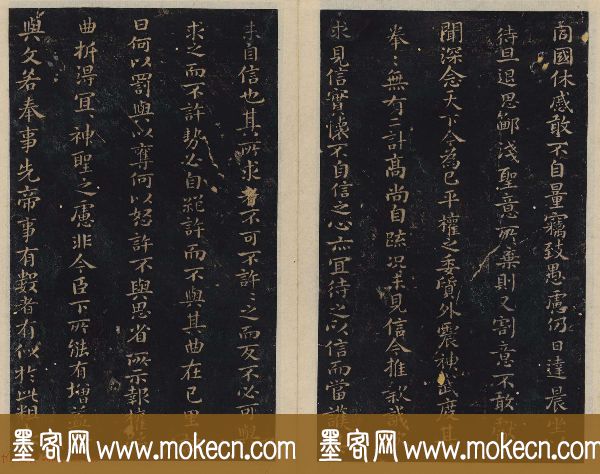 同國休慼敢不自量竊致愚慮仍日達晨坐
待旦退思鄙淺聖意所棄則又割意不敢獻
聞深念天下今為已平權之委質外震神武度其
拳〻無有二計高尚自疏況未見信今推款誠
求見信實懷不自信之心亦宜待之以信而當護
未自信也其所求者不可不許〻之而反不必可與
求之而不許勢必自絕許而不與其曲在己里
曰何以罰與以奪何以怒許不與思省所示報權
曲折得宜〻神聖之慮非今臣下所能有增益
與文若奉事先帝事有數者有似於此粗
墨客网 www.mokecn.com 墨客网 www.mokecn.com